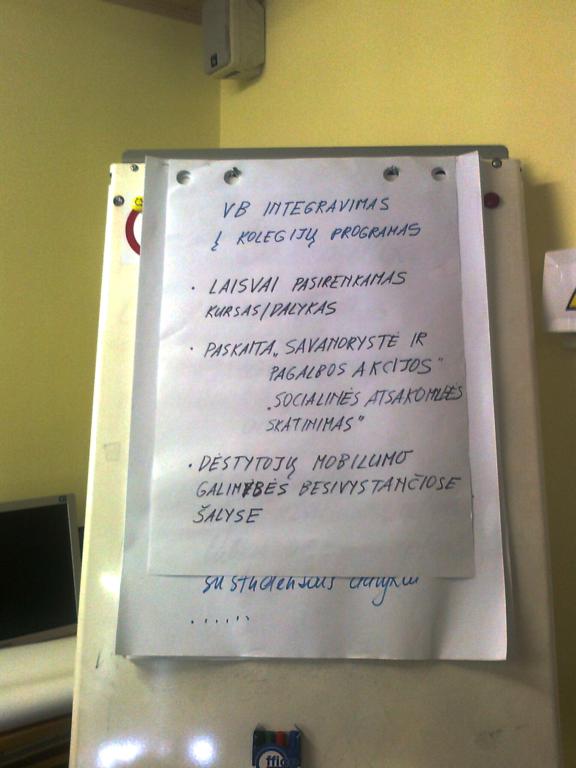 VB INTEGRAVIMAS
Į KOLEGIJŲ PROGRAMAS
· LAISVAI PASIRENKAMAS
KURSAS/DALYKAS
· PASKAITA „SAVANORYSTĖ IR
PAGALBOS AKCIJOS"
„SOCIALINĖS ATSAKOMBĖS
SKATINIMAS"
· DĖSTYTOJŲ MOBILUMO
GALIMYBĖS BESIVYSTANČIOSE
ŠALYSE
su studentais
......
ffic